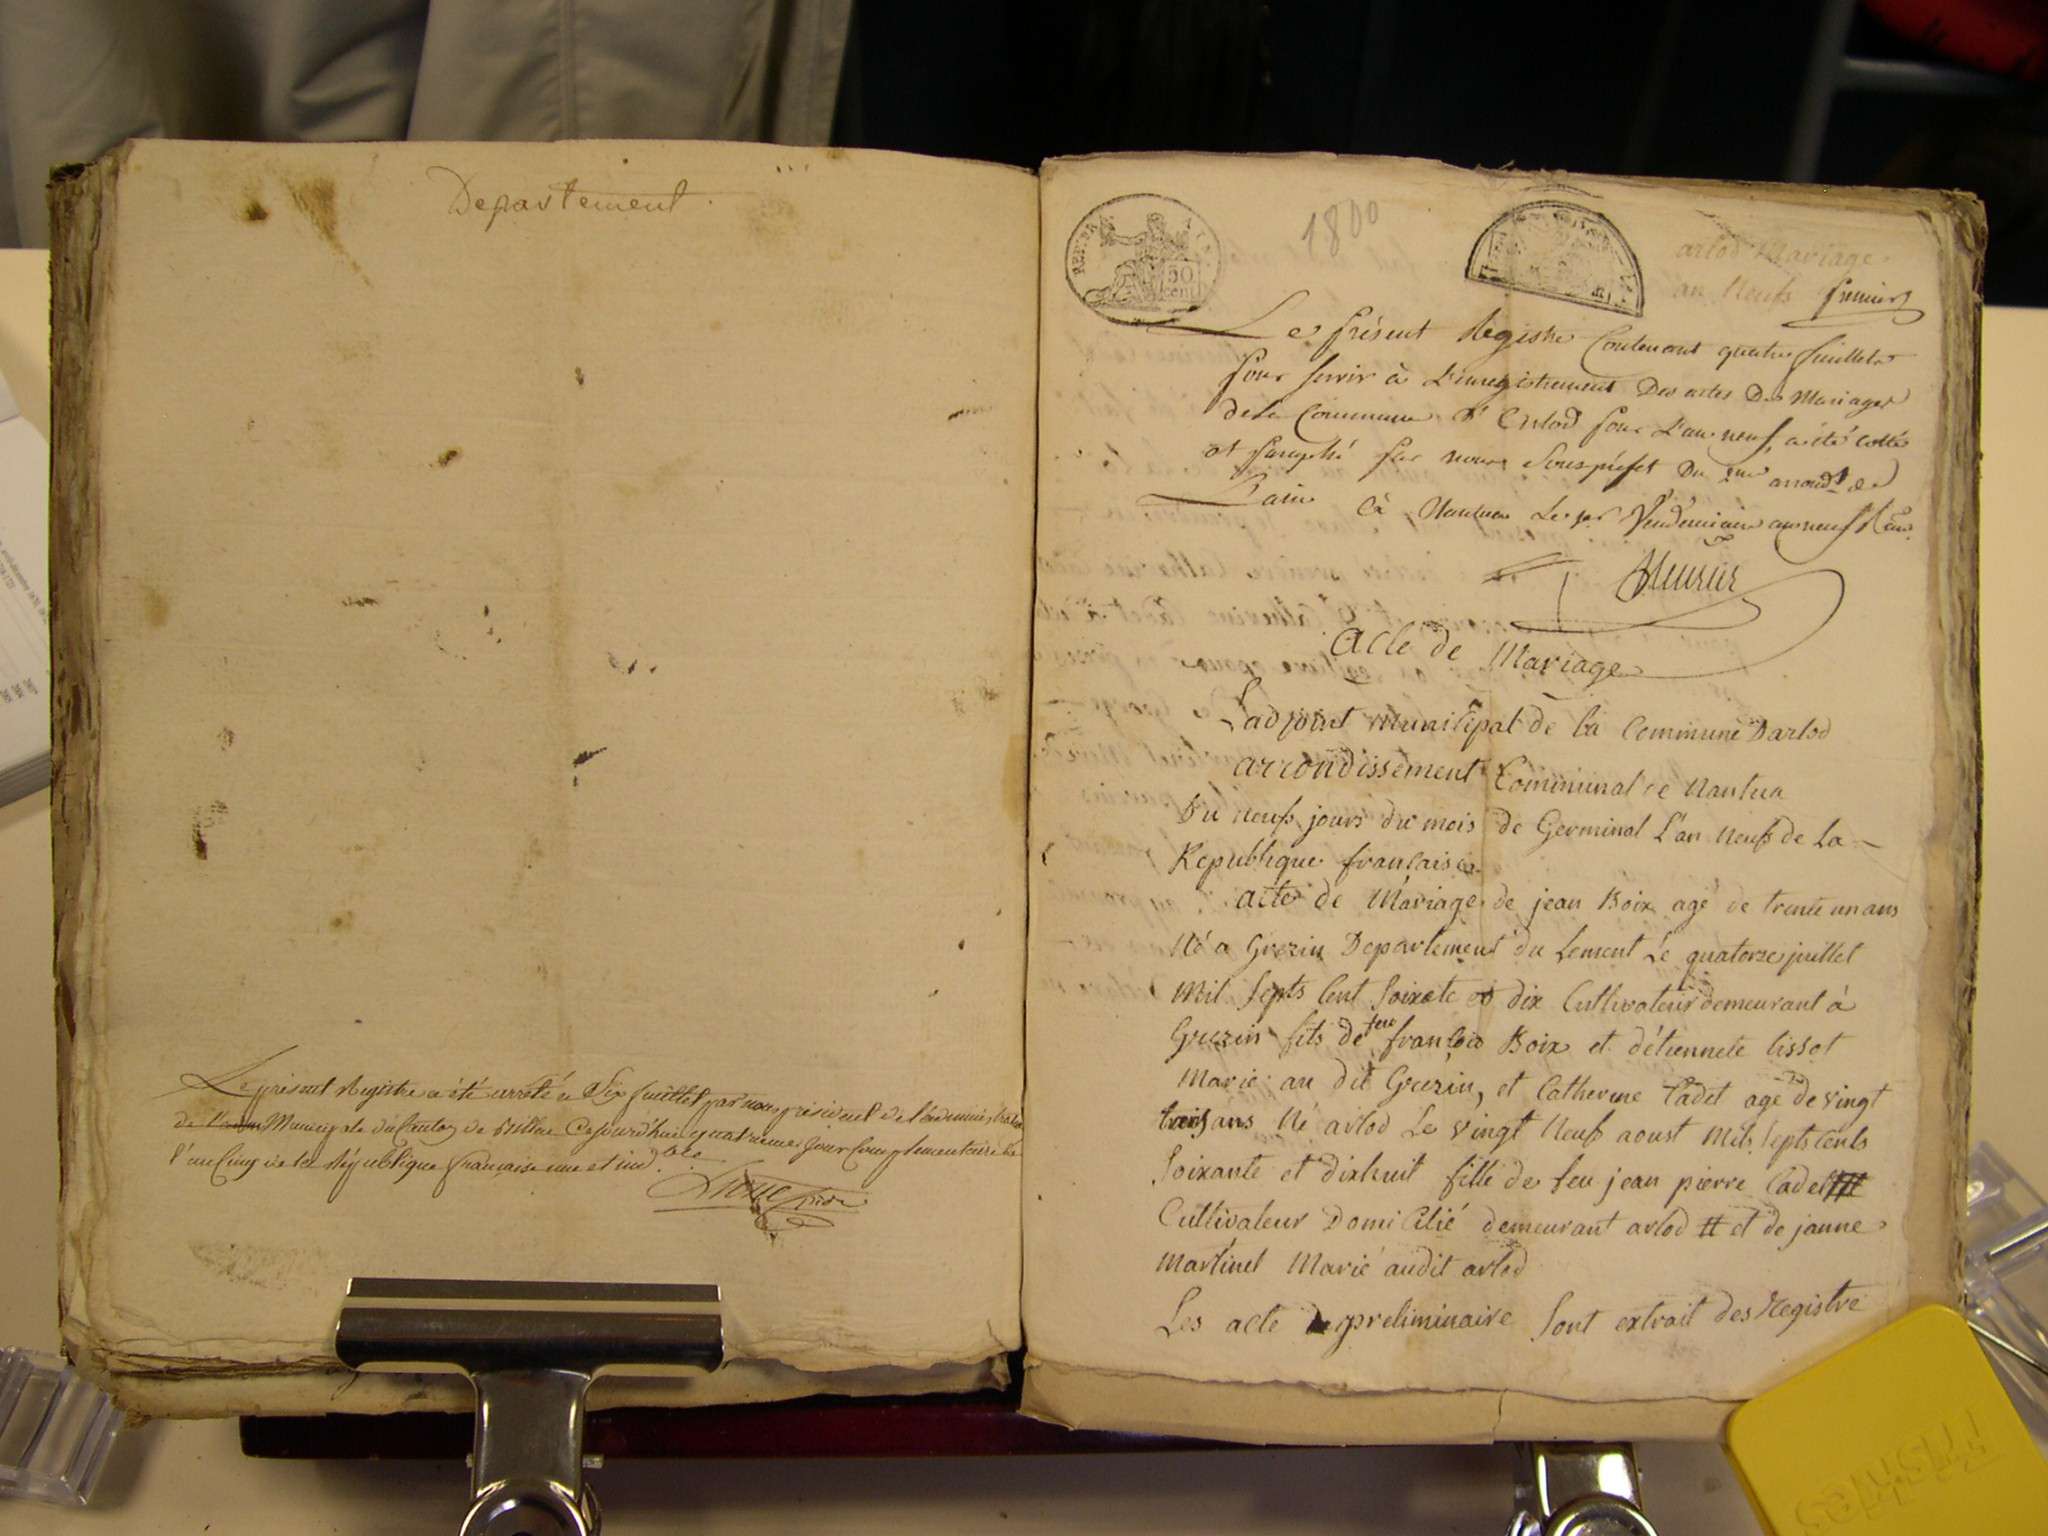 Departement.
Le présent Registre a été arrété a Six feuillet par nous président de l'administration
Municipale du Canton de Billiat Cejourd'hui quatrieme jour Complementaire de
l'an Cinq de la République française une et ind.ble
REP. FRA.
50
cent
1800
arlod Mariage
an Neuf premier
Le présent Registre Contenant quatre feuillets
pour servir à L'enregistrement Des actes De Mariages
de la Commune D'Arlod pour L'an neuf, a été cotté
et paraphé par nous Souspréfet Du 2me arrondt de
L'ain à Nantua Le 1er Vendemiaire an neuf
acte de Mariage
Ladjoint municipal de la Commune Darlod
arrondissement Communal de Nantua
Du neuf jours du mois de Germinal L'an Neuf de La
Republique francaise
acte de Mariage de jean Boix agé de trente un ans
Né a Grezin Departement du Lement Le quatorze juillet
Mil Septs Cent Soixcte et dix Cultivateur demeurant à
Grezin fils de feu francois Boix et détiennete lissot
Marié au dit Grezin, et Catherine Cadet agé de vingt
trois ans Né arlod Le vingt Neuf aoust Mils Septs Cents
Soixante et dixhuit fille de feu jean pierre Cadet
Cultivateur Domicilié demeurant arlod et de janne
Martinet Marié audit arlod
Les acte de preliminaire Sont extrait des Registre